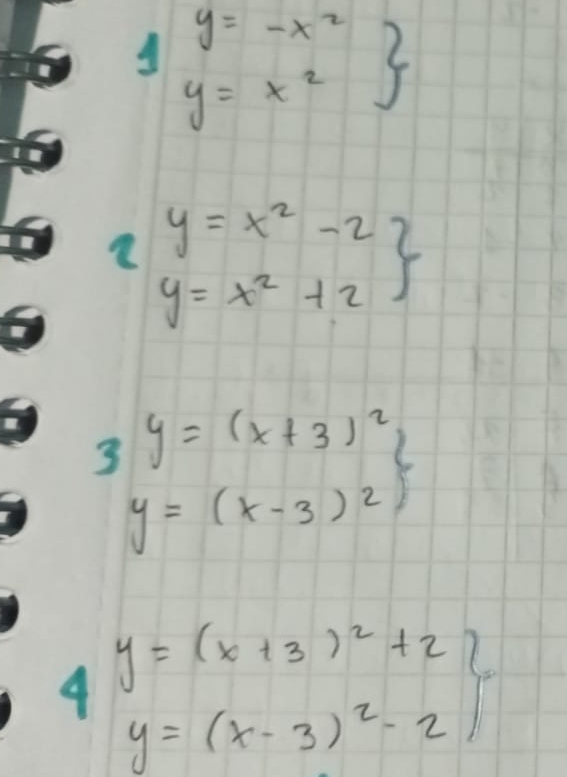 1 y = -x²
y = x² }
2 y = x² - 2
y = x² + 2 }
3 y = (x + 3)²
y = (x - 3)² }
4 y = (x + 3)² + 2
y = (x - 3)² - 2 }